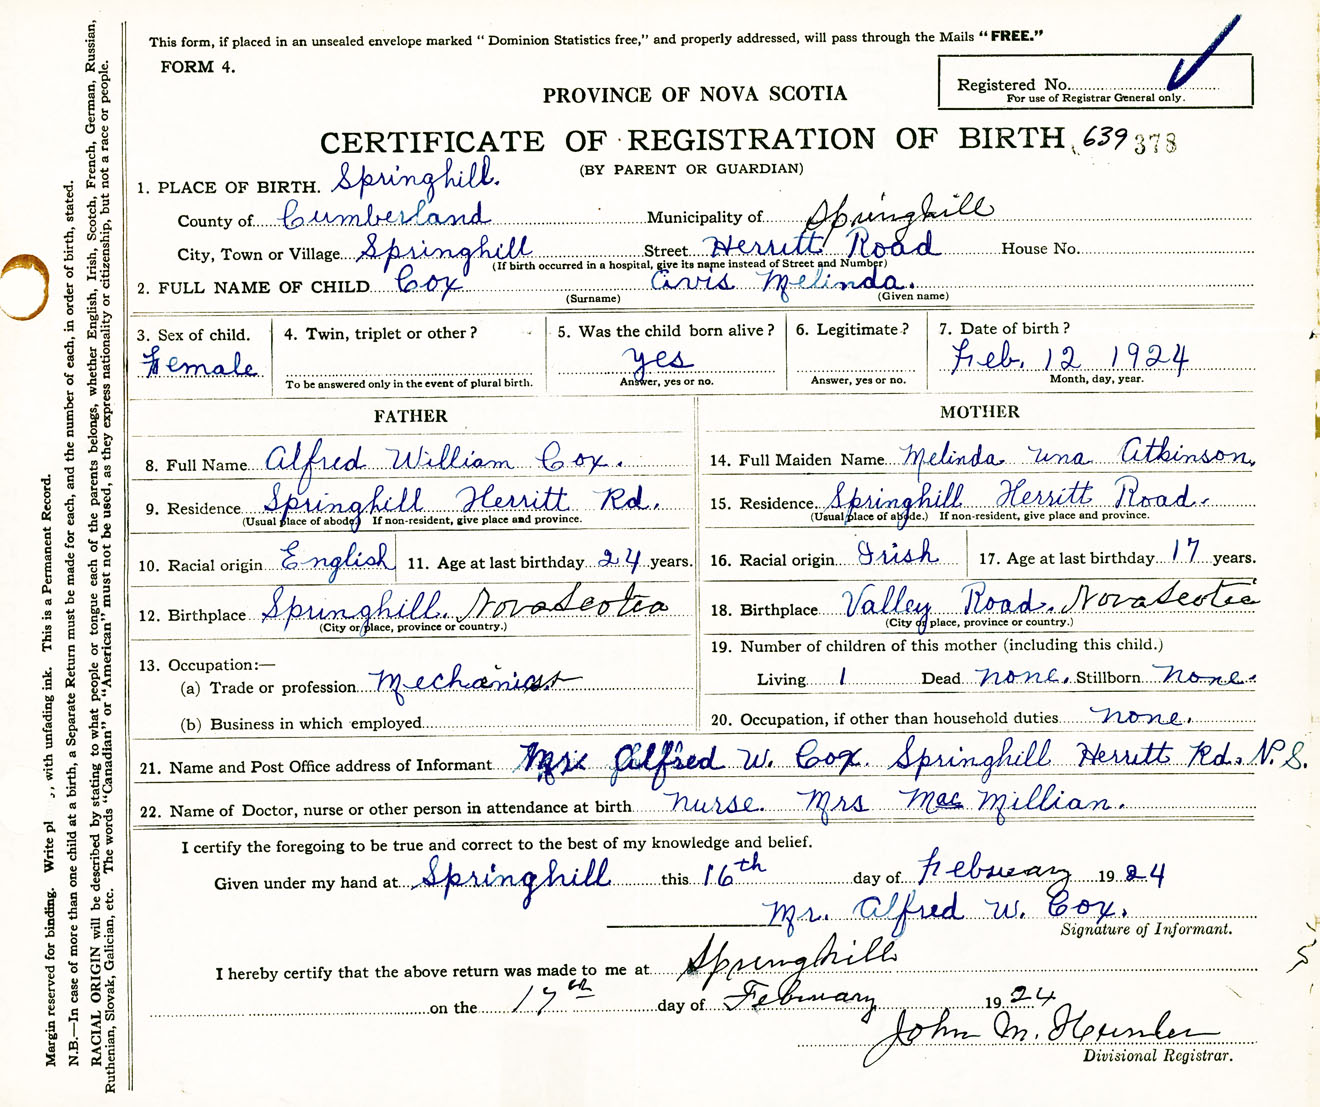 This form, if placed in an unsealed envelope marked " Dominion Statistics free," and properly addressed, will pass through the Mails "FREE."
FORM 4.
Registered No.
For use of Registrar General only.
PROVINCE OF NOVA SCOTIA
CERTIFICATE OF REGISTRATION OF BIRTH 639 378
(BY PARENT OR GUARDIAN)
1. PLACE OF BIRTH. Springhill.
County of Cumberland Municipality of Springhill
City, Town or Village Springhill Street Herritt Road House No.
(If birth occurred in a hospital, give its name instead of Street and Number)
2. FULL NAME OF CHILD Cox Avis Melinda.
(Surname) (Given name)
3. Sex of child. Female
4. Twin, triplet or other ?
To be answered only in the event of plural birth.
5. Was the child born alive ? yes
Answer, yes or no.
6. Legitimate ?
Answer, yes or no.
7. Date of birth ? Feb. 12 1924
Month, day, year.
FATHER
8. Full Name Alfred William Cox.
9. Residence Springhill Herritt Rd.
(Usual place of abode.) If non-resident, give place and province.
10. Racial origin English 11. Age at last birthday 24 years.
12. Birthplace Springhill. Nova Scotia
(City or place, province or country.)
13. Occupation:—
(a) Trade or profession Mechanist
(b) Business in which employed
MOTHER
14. Full Maiden Name Melinda Una Atkinson.
15. Residence Springhill Herritt Road.
(Usual place of abode.) If non-resident, give place and province.
16. Racial origin Irish 17. Age at last birthday 17 years.
18. Birthplace Valley Road. Nova Scotia
(City or place, province or country.)
19. Number of children of this mother (including this child.)
Living 1 Dead none. Stillborn none.
20. Occupation, if other than household duties none.
21. Name and Post Office address of Informant Mr. Alfred W. Cox. Springhill Herritt Rd. N.S.
22. Name of Doctor, nurse or other person in attendance at birth nurse. Mrs MacMillian.
I certify the foregoing to be true and correct to the best of my knowledge and belief.
Given under my hand at Springhill this 16th day of February 1924
Mr. Alfred W. Cox.
Signature of Informant.
I hereby certify that the above return was made to me at Springhill
on the 17th day of February 1924
John M.
Divisional Registrar.
Margin reserved for binding. Write pl ,, with unfading ink. This is a Permanent Record.
N.B.—In case of more than one child at a birth, a Separate Return must be made for each, and the number of each, in order of birth, stated.
RACIAL ORIGIN will be described by stating to what people or tongue each of the parents belongs, whether English, Irish, Scotch, French, German, Russian,
Ruthenian, Slovak, Galician, etc. The words "Canadian" or "American" must not be used, as they express nationality or citizenship, but not a race or people.